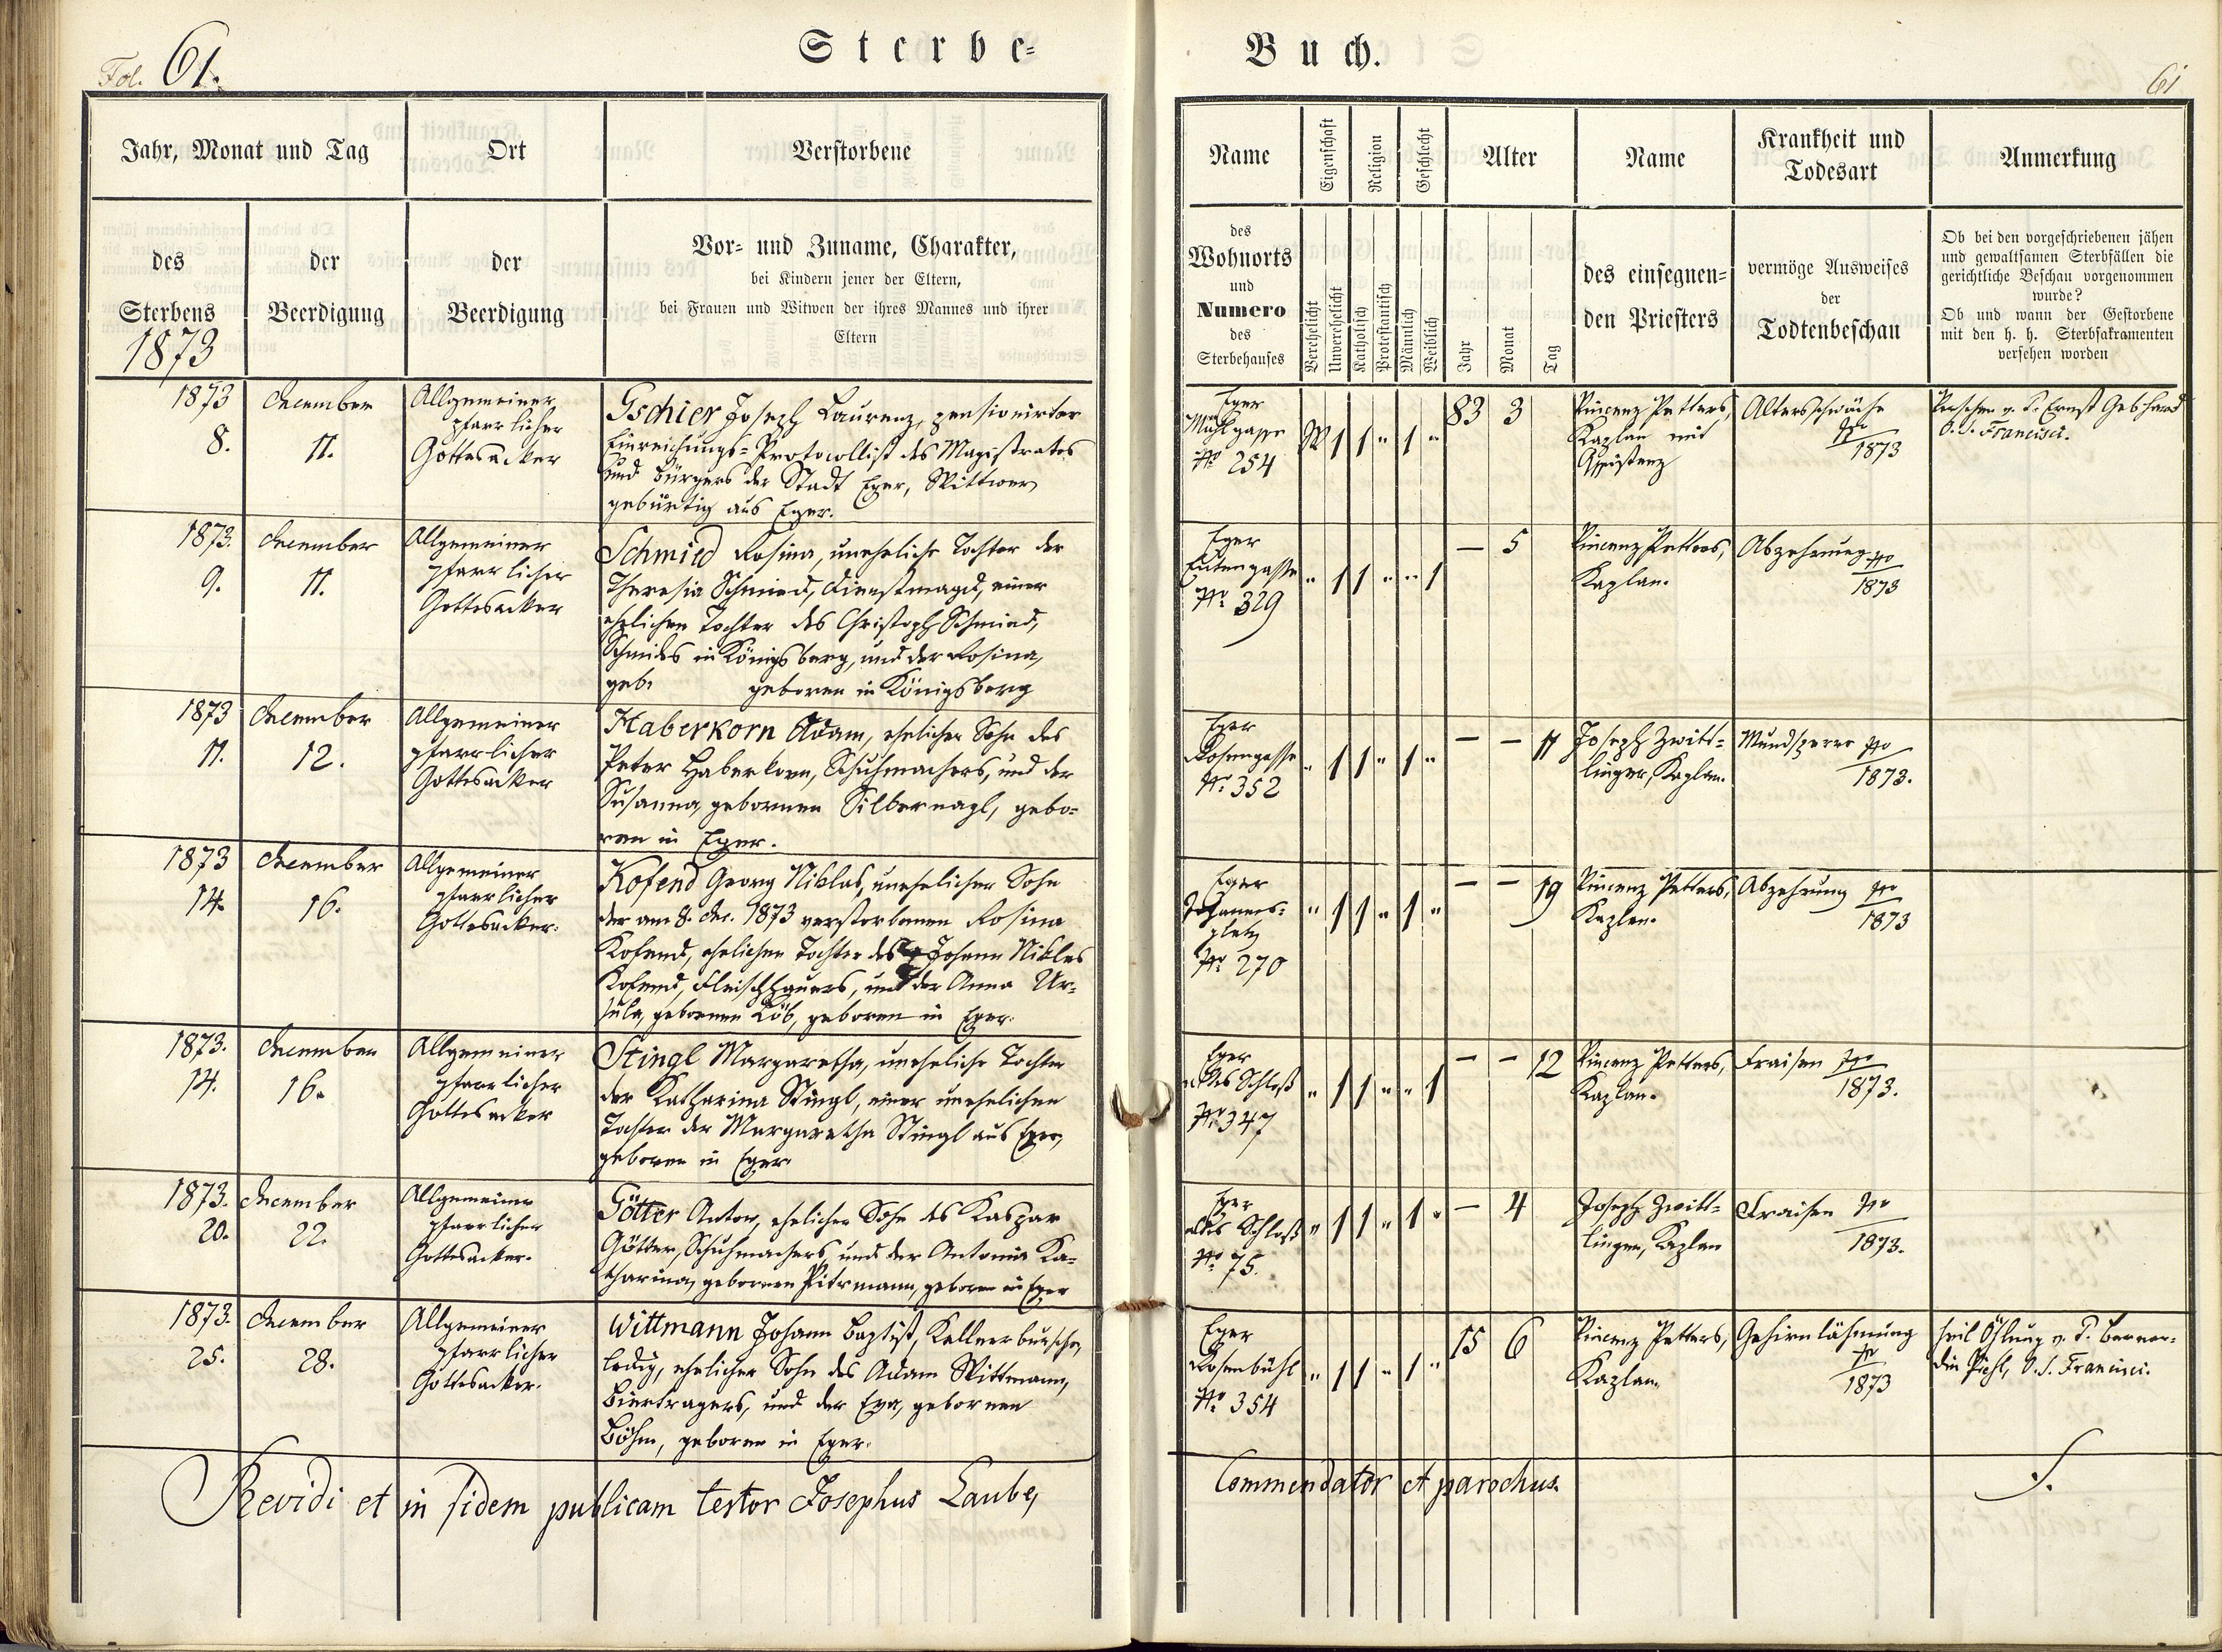 Fol. 61.
Sterbe=
Buch.
61
Jahr, Monat und Tag
Ort
Verstorbene
des
Sterbens
1873
der
Beerdigung
der
Beerdigung
Vor= und Zuname, Charakter,
bei Kindern jener der Eltern,
bei Frauen und Witwen der ihres Mannes und ihrer
Eltern
Name
Eigenschaft
Religion
Geschlecht
Alter
Name
Krankheit und
Todesart
Anmerkung
des
Wohnorts
und
Numero
des
Sterbehauses
Verehelicht
Unverehelicht
Katholisch
Protestantisch
Männlich
Weiblich
Jahr
Monat
Tag
des einsegnen=
den Priesters
vermöge Ausweises
der
Todtenbeschau
Ob bei den vorgeschriebenen jähen
und gewaltsamen Sterbfällen die
gerichtliche Beschau vorgenommen
wurde?
Ob und wann der Gestorbene
mit den h. h. Sterbsakramenten
versehen worden
1873
8.
December
11.
Allgemeiner
pfarrlicher
Gottesacker
Gschier Joseph Laurenz, pensionirter
Einreichungs=Protocollist des Magistrates
und Bürgers der Stadt Eger, Wittwer
gebürtig aus Eger.
Eger
Mühlgasse
No 254
W 1 1 " 1 "
83 3
Vincenz Petters,
Kaplan mit
Assistenz
Altersschwäche
1873
Versehen v. P. Ernst Gebhard
O. S. Francisci.
1873.
9.
December
11.
Allgemeiner
pfarrlicher
Gottesacker
Schmied Rosina, uneheliche Tochter der
Theresia Schmied, Dienstmagd, einer
ehelichen Tochter des Christoph Schmied,
Schmides in Königsberg, und der Rosina,
geb. geboren in Königsberg
Eger
No 329
" 1 1 " " 1
— 5
Vincenz Petters,
Kaplan.
Abzehrung
1873
1873
11.
December
12.
Allgemeiner
pfarrlicher
Gottesacker
Haberkorn Adam, ehelicher Sohn des
Peter Haberkorn, Schuhmachers, und der
Susanna, gebornen Silbernagl, gebo=
ren in Eger.
Eger
Rosengasse
No 352
" 1 1 " 1 "
— — 11
Joseph Zwitt=
linger, Kaplan.
Mundsperre
1873.
1873
14.
December
16.
Allgemeiner
pfarrlicher
Gottesacker.
Kofend Georg Niklas, unehelicher Sohn
der am 8. Dec. 1873 verstorbenen Rosina
Kofend, ehelichen Tochter des Johann Niklas
Kofend, Fleischhauers, und der Anna Ur=
sula, gebornen Löb, geboren in Eger.
Eger
Johannes=
platz
No 270
" 1 1 " 1 "
— — 19
Vincenz Petters,
Kaplan.
Abzehrung
1873
1873.
14.
December
16.
Allgemeiner
pfarrlicher
Gottesacker
Stingl Margaretha, uneheliche Tochter
der Katharina Stingl, einer unehelichen
Tochter der Margaretha Stingl aus Eger,
geboren in Eger
Eger
altes Schloß
No 347
" 1 1 " " 1
— — 12
Vincenz Petters,
Kaplan.
Fraisen
1873.
1873.
20.
December
22.
Allgemeiner
pfarrlicher
Gottesacker.
Götter Anton, ehelicher Sohn des Kaspar
Götter, Schuhmachers und der Antonia Ka=
tharina, gebornen Pitrmann, geboren in Eger
Eger
altes Schloß
No 75.
" 1 1 " 1 "
— 4
Joseph Zwitt=
linger, Kaplan
Fraisen
1873.
1873.
25.
December
28.
Allgemeiner
pfarrlicher
Gottesacker.
Wittmann Johann Baptist, Kellnerbursche,
ledig, ehelicher Sohn des Adam Wittmann,
Bierträgers, und der Eva, gebornen
Böhm, geboren in Eger.
Eger
Rosenbühl
No 354
" 1 1 " 1 "
15 6
Vincenz Petters,
Kaplan.
Gehirnlähmung
1873
heil Öhlung v. P. Bernar=
din O. S. Francisci.
Revidi et in fidem publicam testor Josephus Laube,
Commendator et parochus.